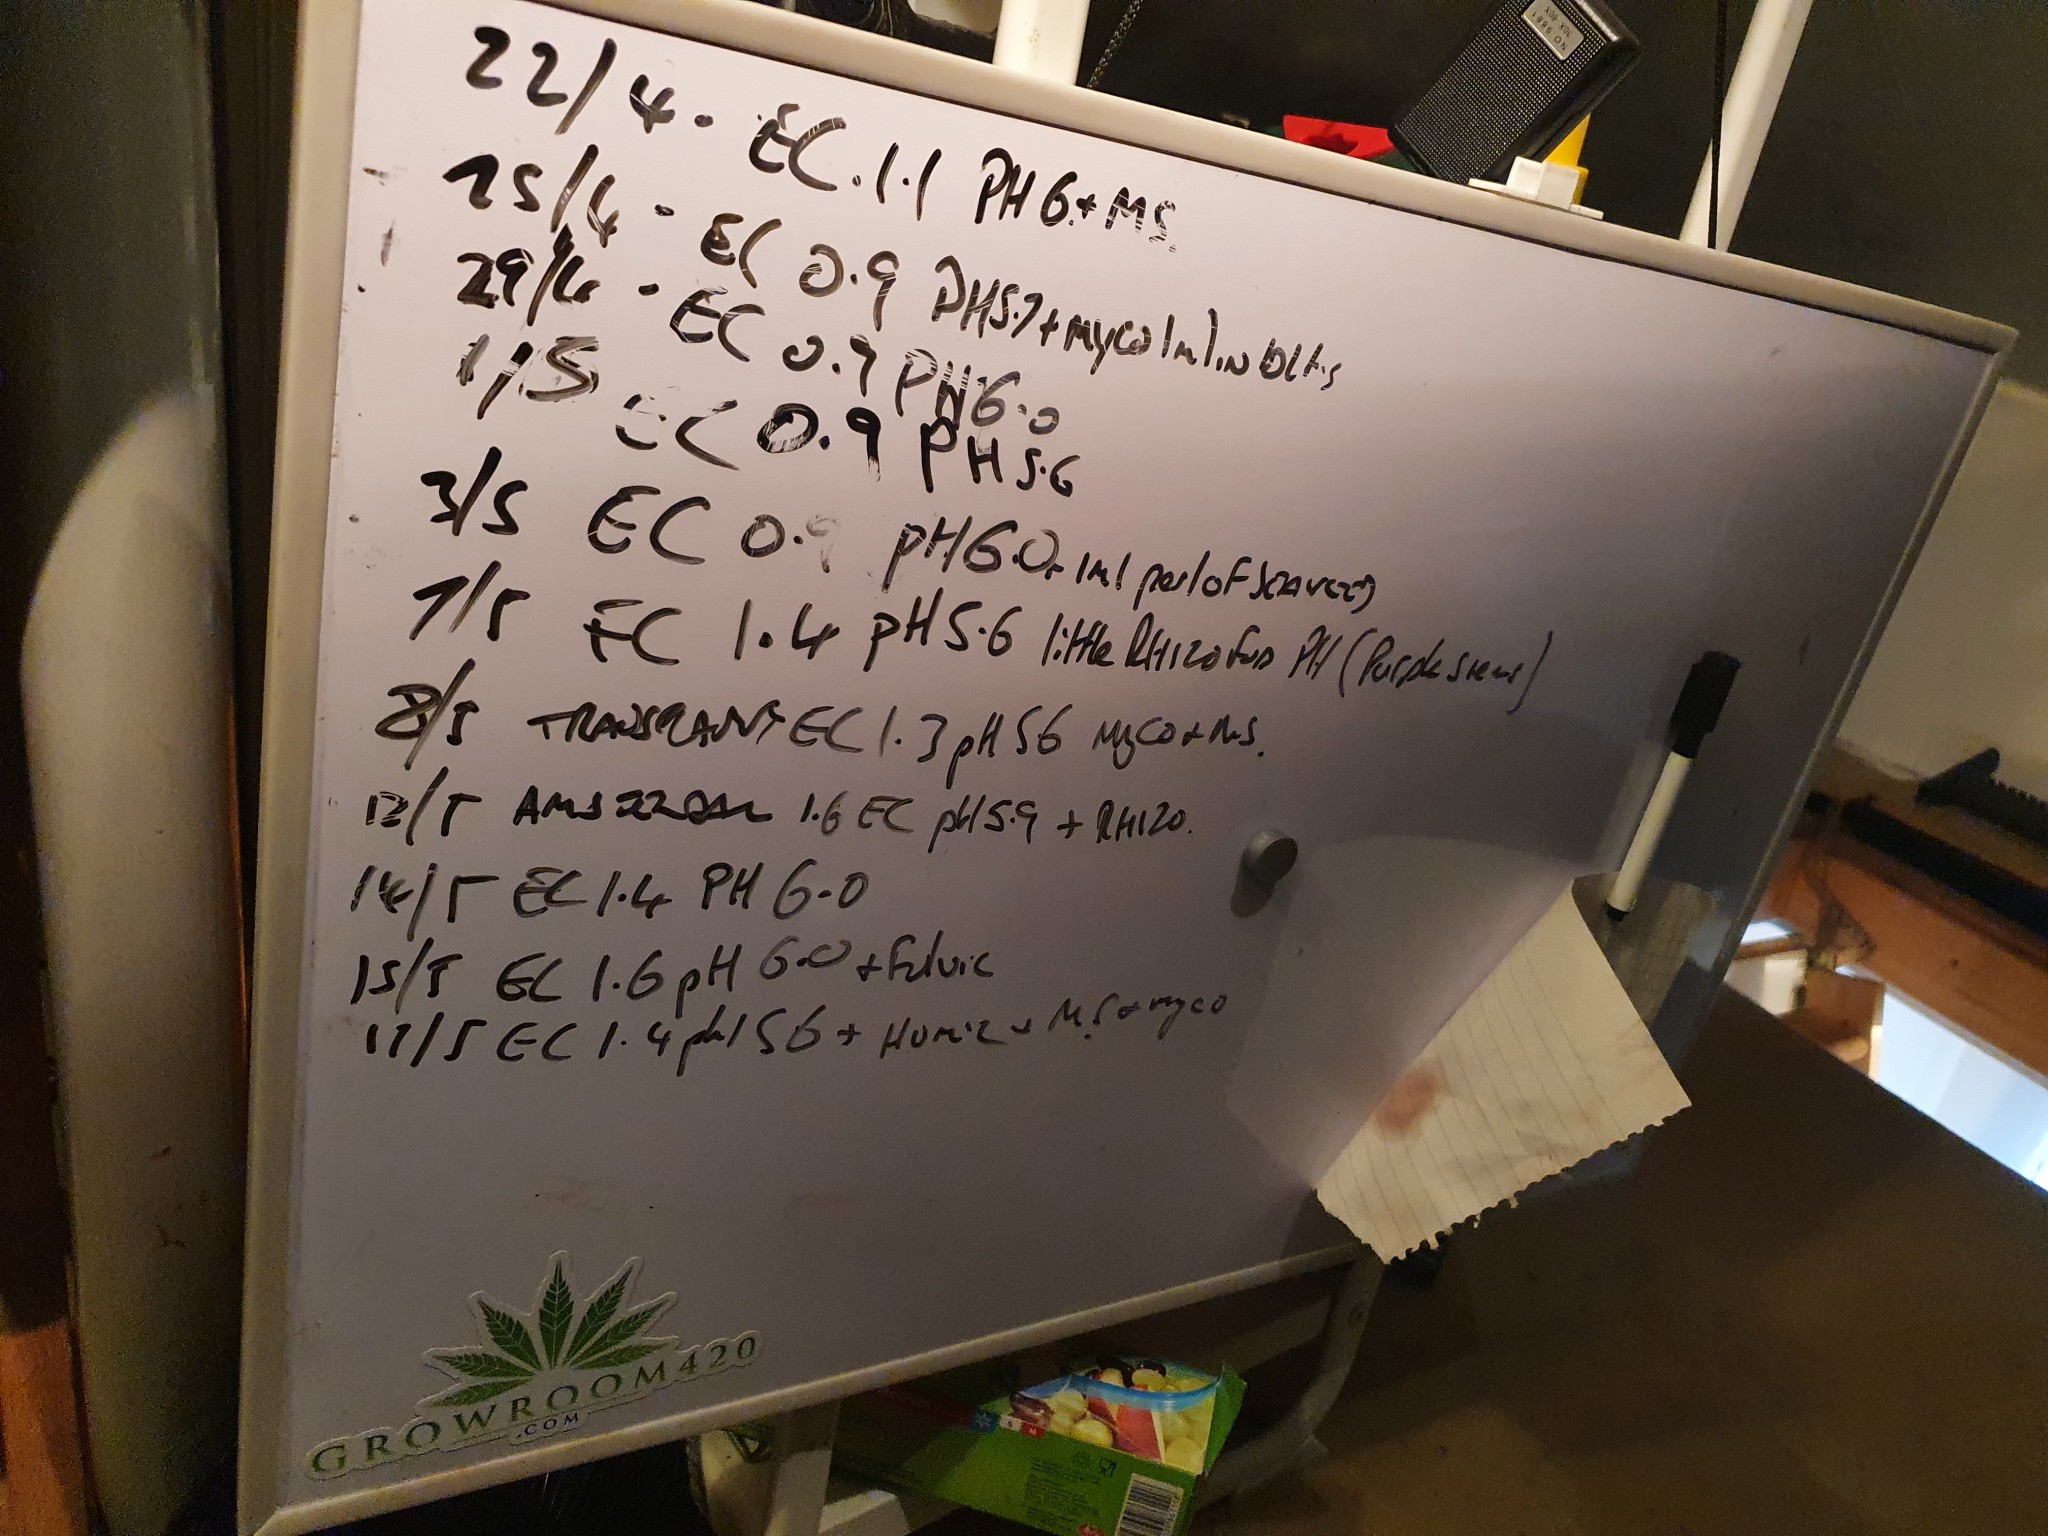 22/4 - EC 1.1 PH 6 + MS.
25/4 - EC 0.9 PH5.7 + MYCO 1ml in
29/4 - EC 0.9 PH 6.0
1/5 EC 0.9 PH 5.6
3/5 EC 0.9 pH 6.0 + 1ml per l of
7/5 EC 1.4 pH 5.6 little RHIZO for PH (Purple stems)
8/5 TRANSPLANT EC 1.3 pH 5.6 MyCO + M.S.
12/5 1.6 EC pH 5.9 + RHIZO.
14/5 EC 1.4 PH 6.0
15/5 EC 1.6 pH 6.0 + Fulvic
17/5 EC 1.4 pH 5.6 + HUMIC + M.S + Myco
GROWROOM420
.COM